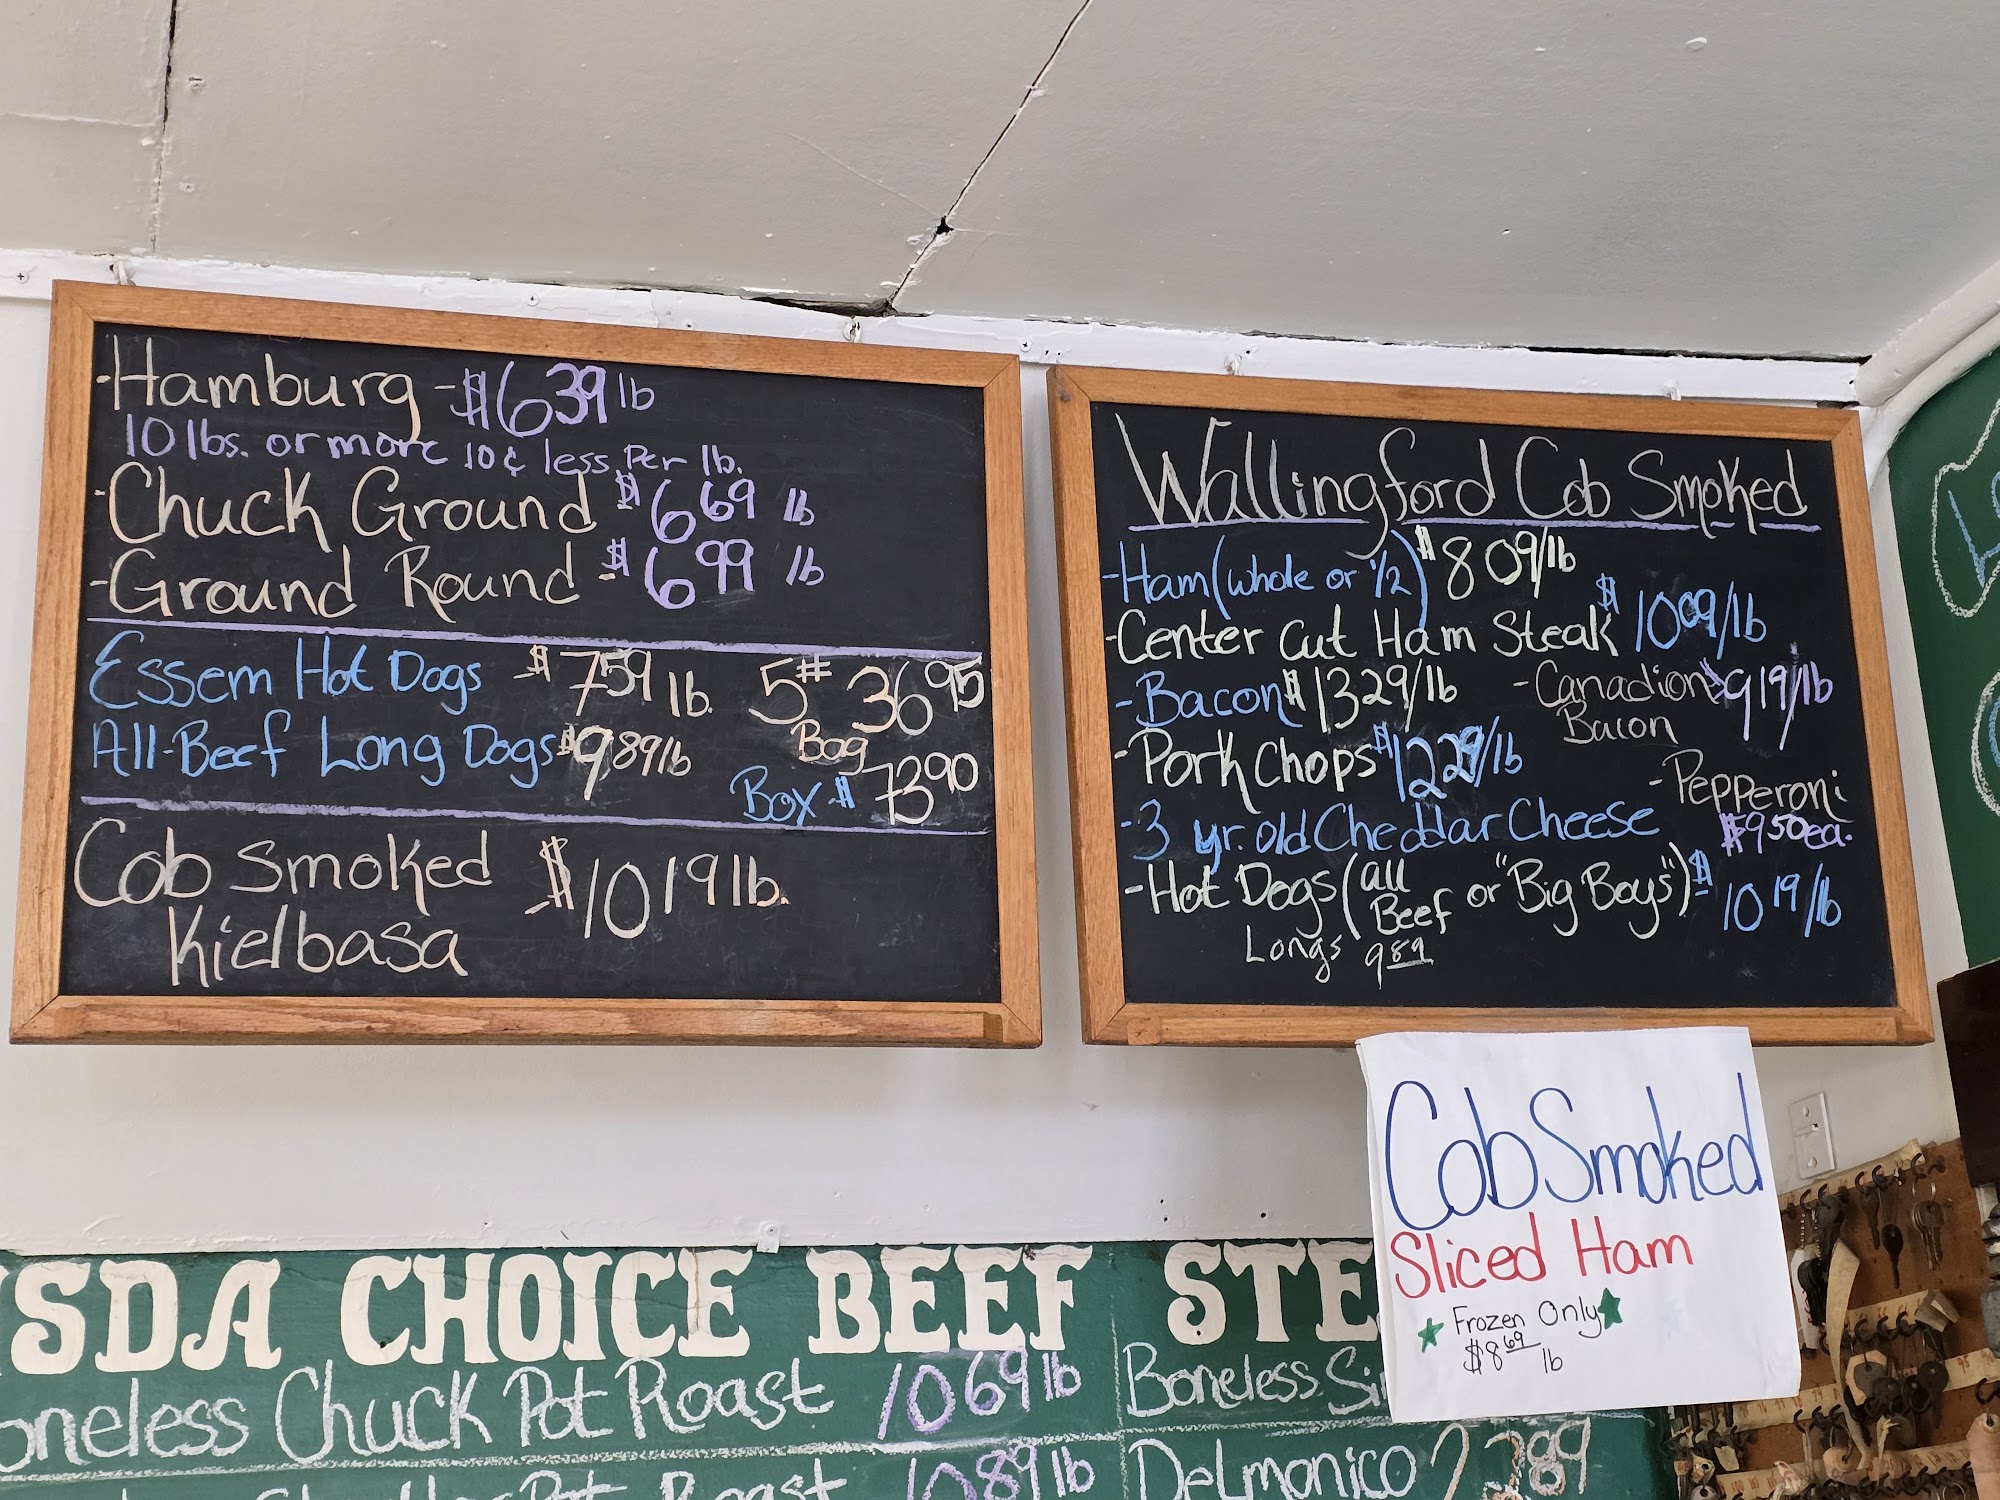 -Hamburg - $6 39 lb
10 lbs. or more 10¢ less Per lb.
-Chuck Ground $6 69 lb
-Ground Round - $6 99 lb
Essem Hot Dogs $7 59 lb. 5# 36 95
Bag
All-Beef Long Dogs $9 89 lb
Box - $73 90
Cob Smoked - $10 19 lb.
Kielbasa
Wallingford Cob Smoked
-Ham (whole or 1/2) $8 09/lb
-Center Cut Ham Steak $10 09/lb
-Bacon $13 29/lb
-Canadian $9 19/lb
Bacon
-Pork Chops $12 29/lb
-Pepperoni
$9 50 ea.
-3 yr. old Cheddar Cheese
-Hot Dogs (all Beef or "Big Boys") $10 19/lb
Longs 9 89
Cob Smoked
Sliced Ham
Frozen Only
$8 69 lb
SDA CHOICE BEEF STE
oneless Chuck Pot Roast 10 69 lb
Boneless Si
Pot Roast 10 89 lb
Delmonico 89